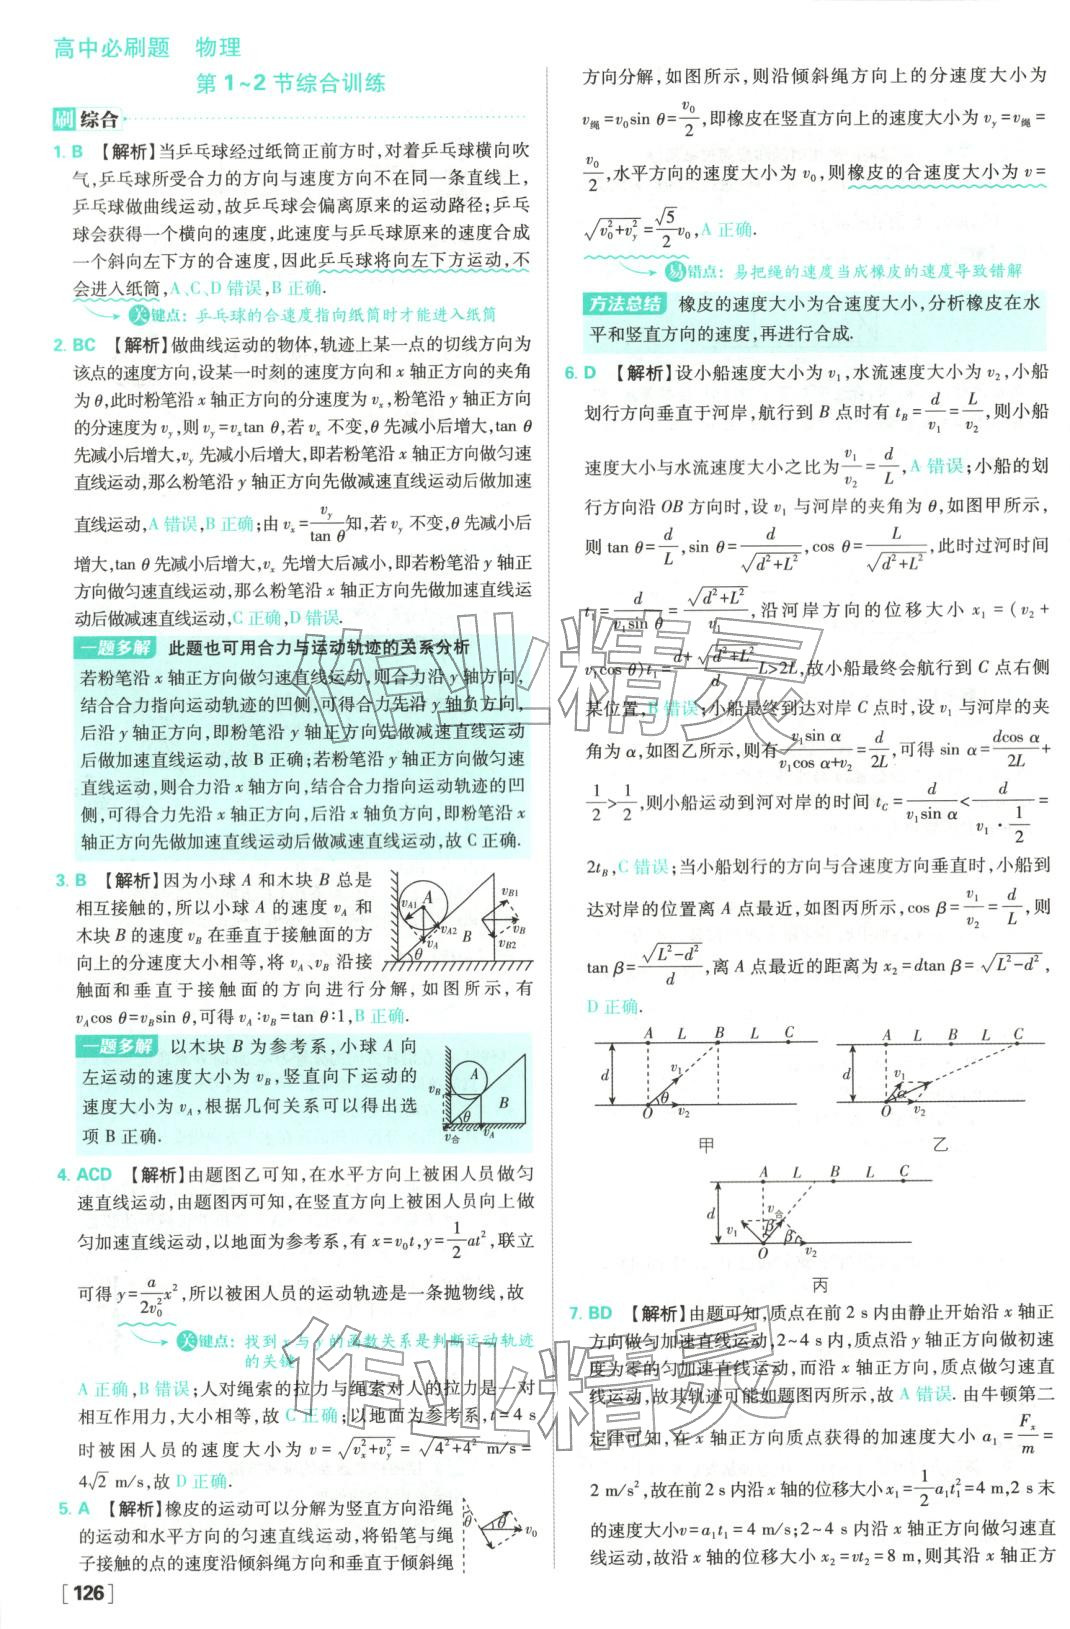 高中必刷题 物理
第1~2节综合训练
刷 综合
1. B 【解析】当乒乓球经过纸筒正前方时,对着乒乓球横向吹
气,乒乓球所受合力的方向与速度方向不在同一条直线上,
乒乓球做曲线运动,故乒乓球会偏离原来的运动路径;乒乓
球会获得一个横向的速度,此速度与乒乓球原来的速度合成
一个斜向左下方的合速度,因此乒乓球将向左下方运动,不
会进入纸筒,A、C、D错误,B正确.
关键点:乒乓球的合速度指向纸筒时才能进入纸筒
2. BC 【解析】做曲线运动的物体,轨迹上某一点的切线方向为
该点的速度方向,设某一时刻的速度方向和 x 轴正方向的夹角
为 θ,此时粉笔沿 x 轴正方向的分速度为 vₓ,粉笔沿 y 轴正方向
的分速度为 v_y,则 v_y=vₓtan θ,若 vₓ 不变,θ 先减小后增大,tan θ
先减小后增大,v_y 先减小后增大,即若粉笔沿 x 轴正方向做匀速
直线运动,那么粉笔沿 y 轴正方向先做减速直线运动后做加速
直线运动,A错误,B正确;由 vₓ=v_y/tan θ知,若 v_y 不变,θ 先减小后
增大,tan θ 先减小后增大,vₓ 先增大后减小,即若粉笔沿 y 轴正
方向做匀速直线运动,那么粉笔沿 x 轴正方向先做加速直线运
动后做减速直线运动,C正确,D错误.
一题多解 此题也可用合力与运动轨迹的关系分析
若粉笔沿 x 轴正方向做匀速直线运动,则合力沿 y 轴方向,
结合合力指向运动轨迹的凹侧,可得合力先沿 y 轴负方向,
后沿 y 轴正方向,即粉笔沿 y 轴正方向先做减速直线运动
后做加速直线运动,故 B 正确;若粉笔沿 y 轴正方向做匀速
直线运动,则合力沿 x 轴方向,结合合力指向运动轨迹的凹
侧,可得合力先沿 x 轴正方向,后沿 x 轴负方向,即粉笔沿 x
轴正方向先做加速直线运动后做减速直线运动,故 C 正确.
3. B 【解析】因为小球 A 和木块 B 总是
相互接触的,所以小球 A 的速度 v_A 和
木块 B 的速度 v_B 在垂直于接触面的方
向上的分速度大小相等,将 v_A、v_B 沿接
触面和垂直于接触面的方向进行分解,如图所示,有
v_Acos θ=v_Bsin θ,可得 v_A∶v_B=tan θ∶1,B正确.
A v_A1 v_A2 v_A B θ v_B1 v_B v_B2
一题多解 以木块 B 为参考系,小球 A 向
左运动的速度大小为 v_B,竖直向下运动的
速度大小为 v_A,根据几何关系可以得出选
项 B 正确.
A v_B B θ v合 v_A
4. ACD 【解析】由题图乙可知,在水平方向上被困人员做匀
速直线运动,由题图丙可知,在竖直方向上被困人员向上做
匀加速直线运动,以地面为参考系,有 x=v₀t,y=1/2at²,联立
可得 y=a/2v₀²x²,所以被困人员的运动轨迹是一条抛物线,故
关键点:找到 x 与 y 的函数关系是判断运动轨迹
的关键
A正确,B错误;人对绳索的拉力与绳索对人的拉力是一对
相互作用力,大小相等,故 C正确;以地面为参考系,t=4 s
时被困人员的速度大小为 v=√(vₓ²+v_y²)=√(4²+4²) m/s=
4√2 m/s,故 D正确.
5. A 【解析】橡皮的运动可以分解为竖直方向沿绳
的运动和水平方向的匀速直线运动,将铅笔与绳
子接触的点的速度沿倾斜绳方向和垂直于倾斜绳
θ θ v₀
[126]
方向分解,如图所示,则沿倾斜绳方向上的分速度大小为
v绳=v₀sin θ=v₀/2,即橡皮在竖直方向上的速度大小为 v_y=v绳=
v₀/2,水平方向的速度大小为 v₀,则橡皮的合速度大小为 v=
√(v₀²+v_y²)=√5/2v₀,A正确.
易错点:易把绳的速度当成橡皮的速度导致错解
方法总结 橡皮的速度大小为合速度大小,分析橡皮在水
平和竖直方向的速度,再进行合成.
6. D 【解析】设小船速度大小为 v₁,水流速度大小为 v₂,小船
划行方向垂直于河岸,航行到 B 点时有 t_B=d/v₁=L/v₂,则小船
速度大小与水流速度大小之比为v₁/v₂=d/L,A错误;小船的划
行方向沿 OB 方向时,设 v₁ 与河岸的夹角为 θ,如图甲所示,
则 tan θ=d/L,sin θ=d/√(d²+L²),cos θ=L/√(d²+L²),此时过河时间
t₁=d/v₁sin θ=√(d²+L²)/v₁,沿河岸方向的位移大小 x₁=(v₂+
v₁cos θ)t₁=(d+√(d²+L²))/d L>2L,故小船最终会航行到 C 点右侧
某位置,B错误;小船最终到达对岸 C 点时,设 v₁ 与河岸的夹
角为 α,如图乙所示,则有v₁sin α/(v₁cos α+v₂)=d/2L,可得 sin α=dcos α/2L+
1/2>1/2,则小船运动到河对岸的时间 t_C=d/v₁sin α<d/(v₁·1/2)=
2t_B,C错误;当小船划行的方向与合速度方向垂直时,小船到
达对岸的位置离 A 点最近,如图丙所示,cos β=v₁/v₂=d/L,则
tan β=√(L²-d²)/d,离 A 点最近的距离为 x₂=dtan β=√(L²-d²),
D正确.
A L B L C d v₁ θ O v₂
甲
A L B L C d v₁ α O v₂
乙
A L B L C d v₁ v合 β β O v₂
丙
7. BD 【解析】由题可知,质点在前 2 s 内由静止开始沿 x 轴正
方向做匀加速直线运动,2~4 s 内,质点沿 y 轴正方向做初速
度为零的匀加速直线运动,而沿 x 轴正方向,质点做匀速直
线运动,故其轨迹可能如题图丙所示,故 A错误. 由牛顿第二
定律可知,在 x 轴正方向质点获得的加速度大小 a₁=Fₓ/m=
2 m/s²,前 2 s 内质点沿 x 轴的位移大小x₁=1/2a₁t₁²=4 m,2 s 末
的速度大小v=a₁t₁=4 m/s;2~4 s 内沿 x 轴正方向做匀速直
线运动,故沿 x 轴的位移大小 x₂=vt₂=8 m,则其沿 x 轴正方
作业精灵
作业精灵